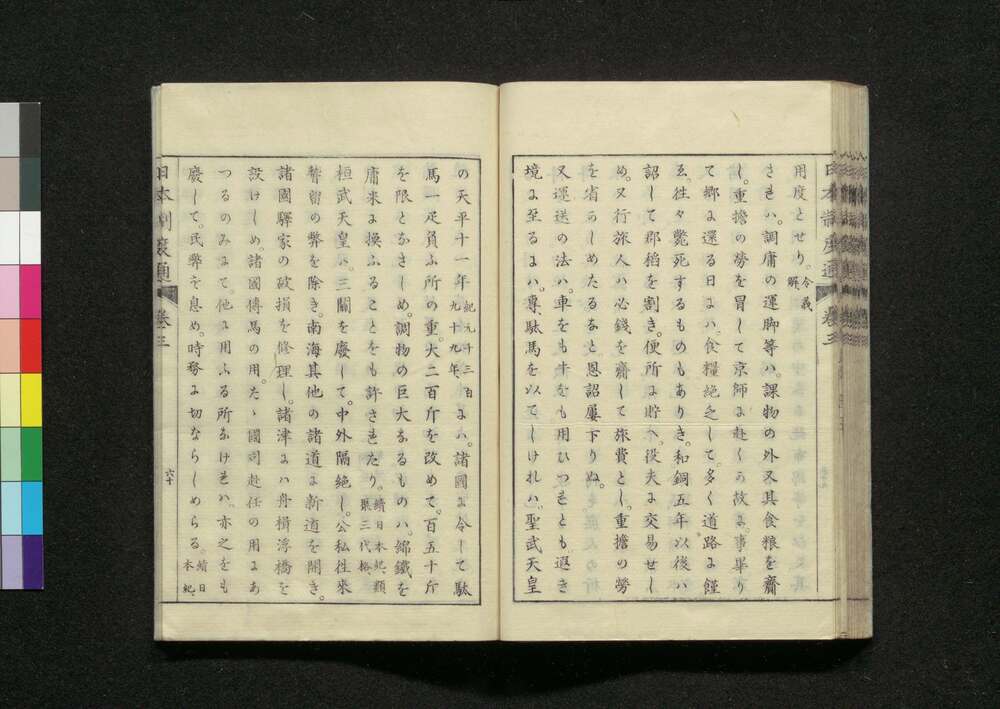 用度とせり。令義解
されバ。調庸の運脚等ハ。課物の外又其食粮を齎
し。重擔の勞を冒して京師に赴くが故に。事畢り
て郷に還る日にハ。食糧絶乏して。多く道路に饉
ゑ。往々斃死するものもありき。和銅五年以後ハ
詔して郡稻を割き。便所に貯へ。役夫に交易せし
め。又行旅人ハ必錢を齎して旅費とし。重擔の勞
を省かしめたるなと恩詔屢下りぬ。
又運送の法ハ。車をも牛をも用ひつれとも遐き
境に至るにハ。專駄馬を以てしけれハ。聖武天皇
の天平十一年紀元千三百九十九年にハ。諸國に令して駄
馬一疋負ふ所の重。大二百斤を改めて。百五十斤
を限となさしめ。調物の巨大なるものハ。綿鐵を
庸米に換ふることをも許されたり。續日本紀、類聚三代格
桓武天皇ハ。三關を廢して。中外隔絶し。公私往來
稽留の弊を除き。南海其他の諸道に新道を開き。
諸國驛家の破損を修理し。諸津にハ舟檝浮橋を
設けしめ。諸國傳馬の用。たゝ國司赴任の用にあ
つるのみにて。他に用ふる所なけれハ。亦之をも
廢して。民弊を息め。時務に切ならしめらる。續日本紀、
日本制度通 卷三
六十